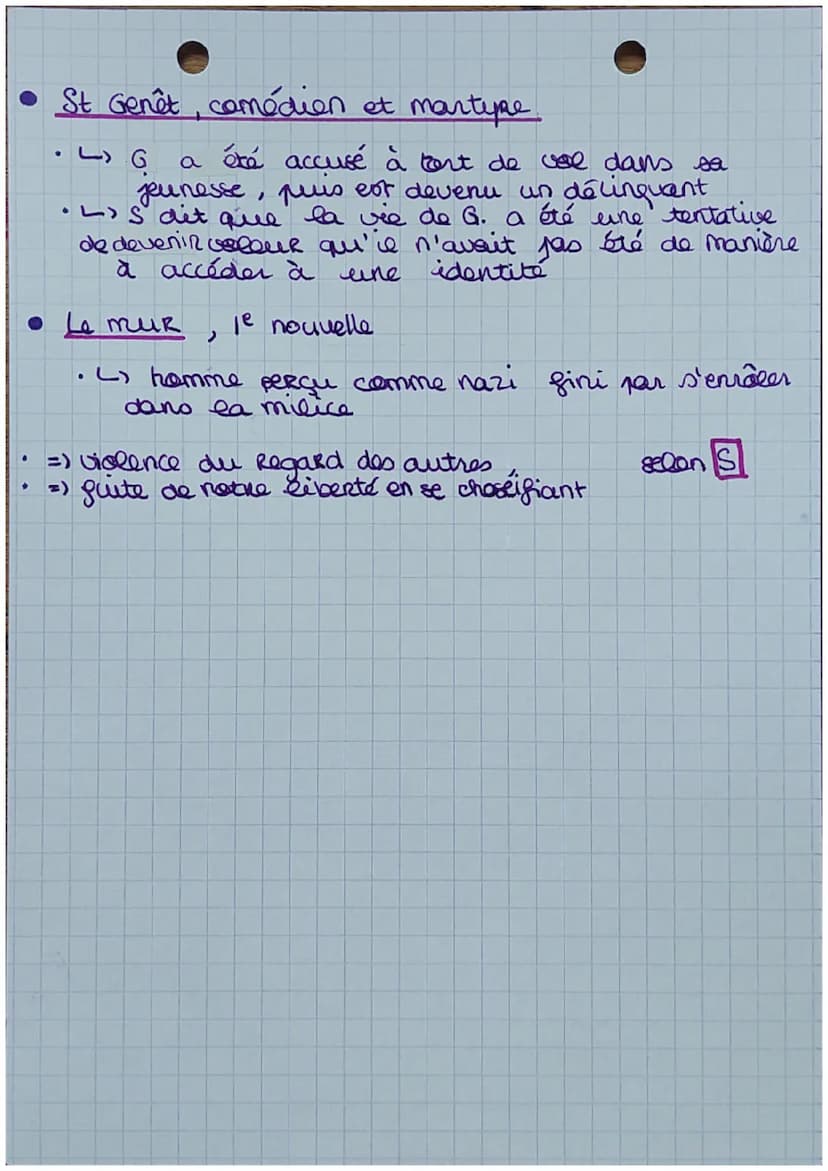 • St Genêt, comédien et martyre
• ↳ G a été accusé à tort de vol dans sa
jeunesse, puis est devenu un délinquant
• ↳ S dit que la vie de G. a été une tentative
de devenir voleur qu'il n'avait pas été de manière
à accéder à une identité
• Le mur, 1e nouvelle
• ↳ homme perçu comme nazi fini par s'enrôler
dans la milice
• => violence du regard des autres, selon S
• => fuite de notre liberté en se choséifiant